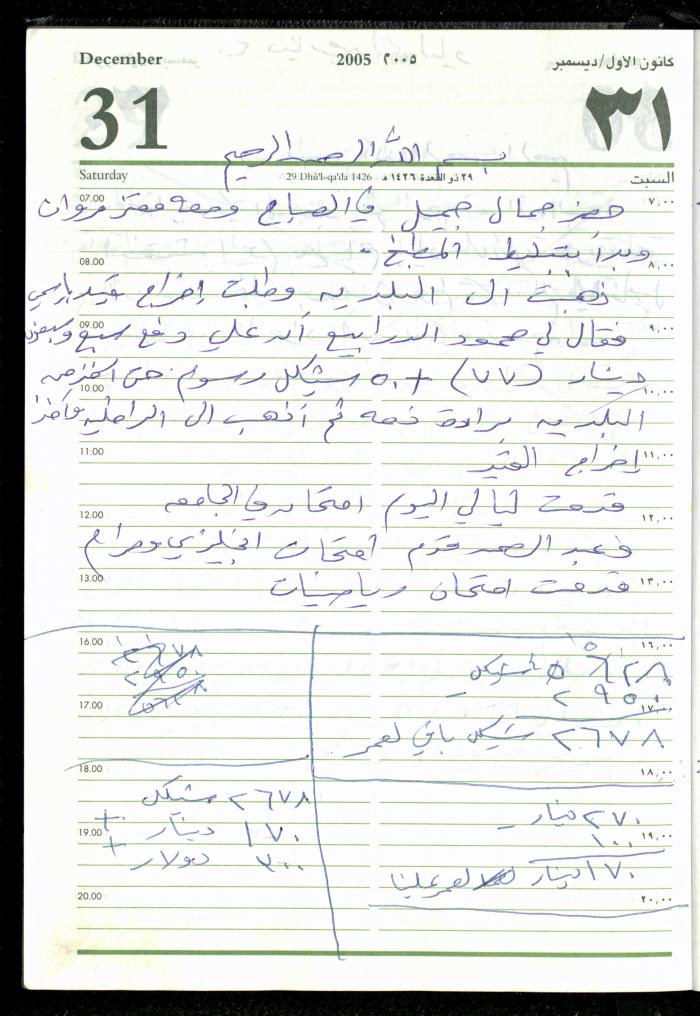 December 2005 ٢٠٠٥ كانون الأول/ديسمبر
31 ٣١
بسم الله الرحمن الرحيم
Saturday 29 Dhû'l-qa'da 1426 ٢٩ ذو القعدة ١٤٢٦ هـ السبت
07.00 ٧,٠٠
حضر جمال جميل في الصباح ومعه معتز مروان
وبدأ بتبليط المطبخ.
08.00 ٨,٠٠
ذهبت الى البلديه وطلبت إخراج قيد
09.00 ٩,٠٠
فقال لي محمود الدرابيع أنه علي دفع سبع وسبعون
دينار (٧٧) + ٥٠ شيكل رسوم حتى
10.00 ١٠,٠٠
البلديه براءة ذمه ثم أذهب الى
11.00 ١١,٠٠
إخراج القيد
قدمت ليالي اليوم امتحان في الجامعه
12.00 ١٢,٠٠
وعبد الصمد قدم امتحان انجليزي ومرام
13.00 ١٣,٠٠
قدمت امتحان رياضيات
16.00 ١٦,٠٠
٥٦٢٨ شيكل
٢٩٥٠
17.00 ١٧,٠٠
٢٦٧٨ شيكل باقي لعمر
18.00 ١٨,٠٠
٢٧٠ دينار -
١٠٠
19.00 ١٩,٠٠
١٧٠ دينار لعمر علينا
20.00 ٢٠,٠٠
٢٦٧٨ شيكل
+ ١٧٠ دينار
+ ٣٠٠ دولار